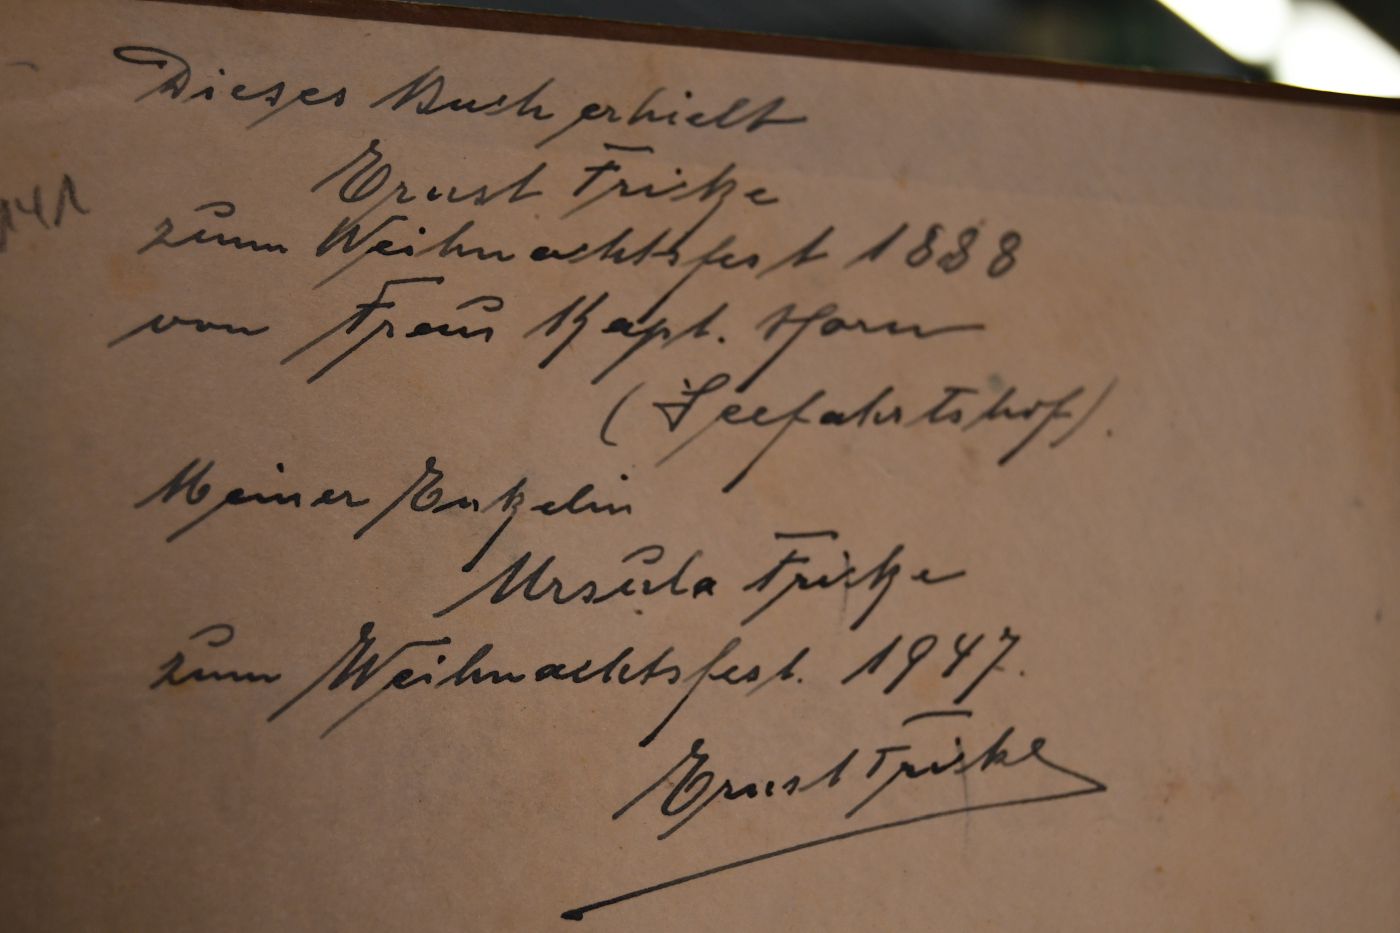 Dieses Buch erhielt
Ernst Fricke
zum Weihnachtsfest 1888
von Frau Kapt. Horn
(Seefahrtshof).
Meiner Enkelin
Ursula Fricke
zum Weihnachtsfest. 1947.
Ernst Fricke